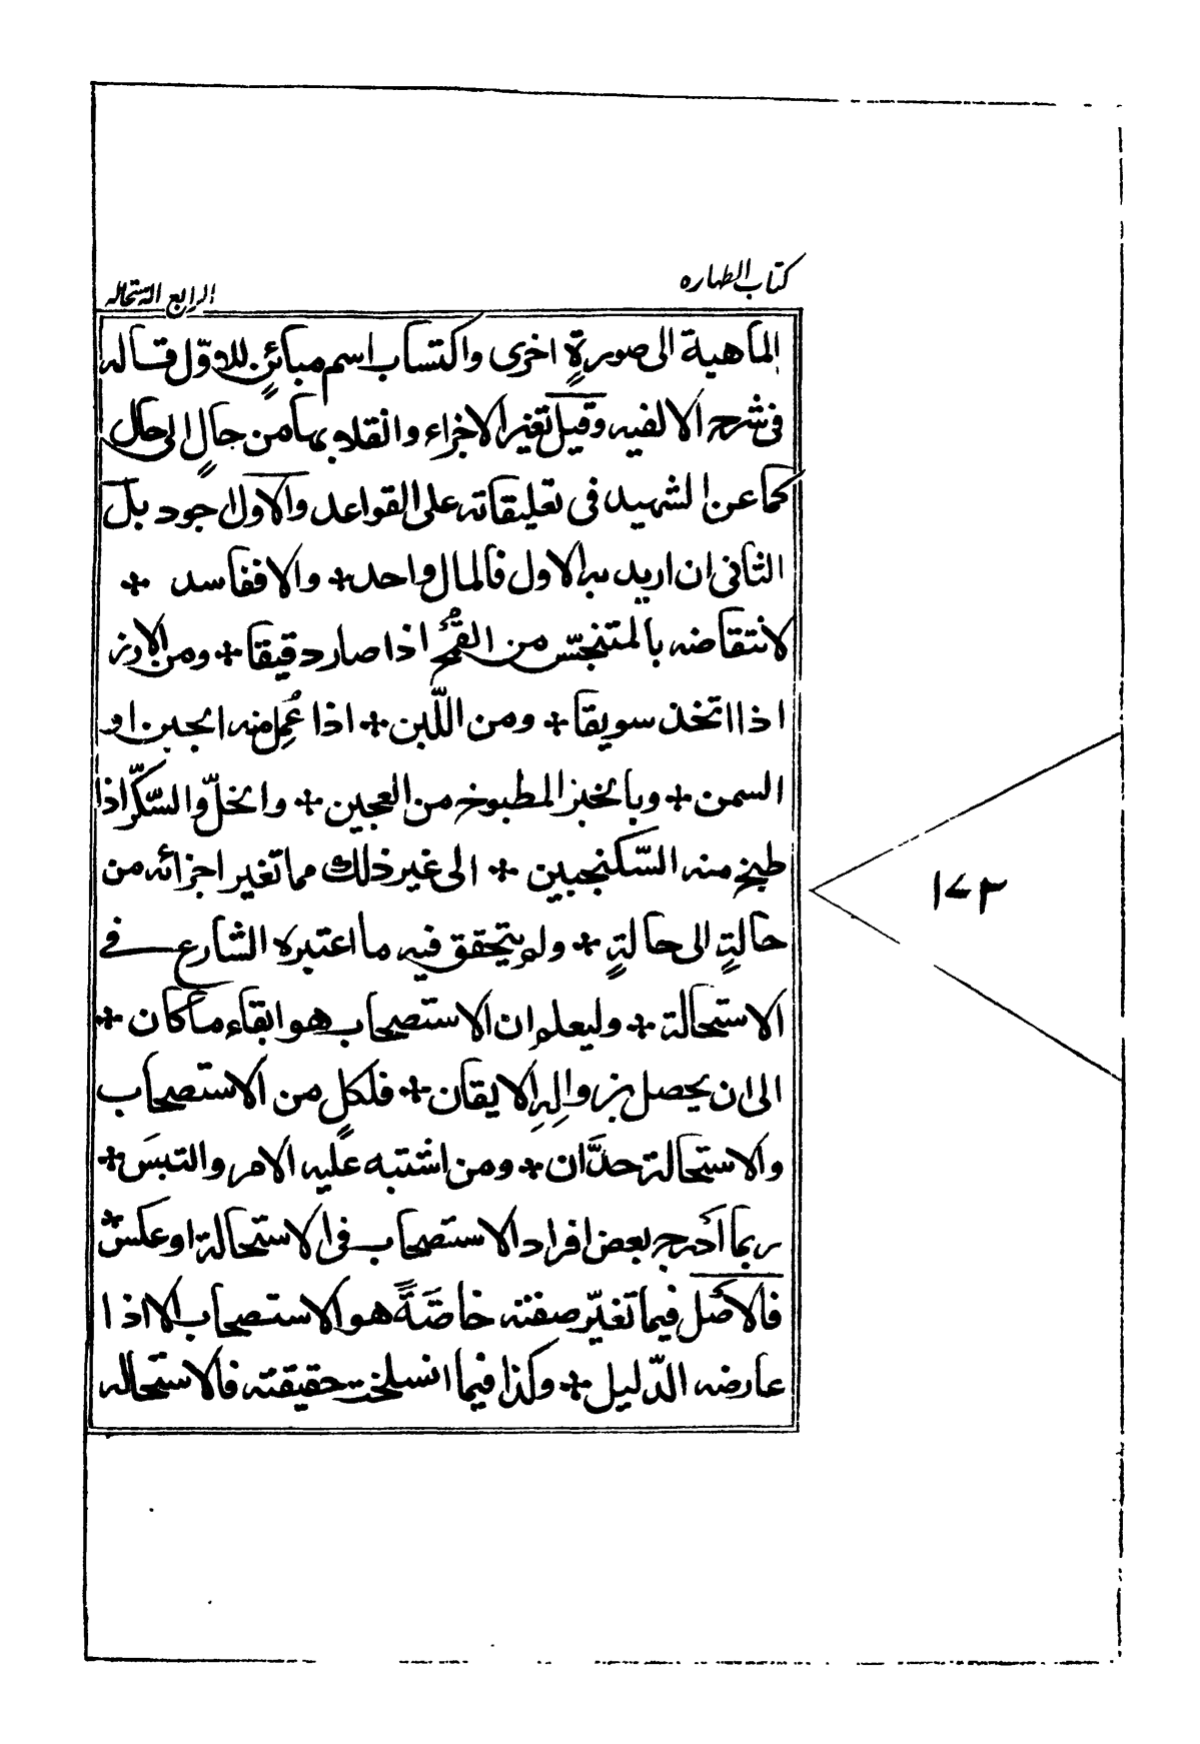 كتاب الطهاره
الرابع الاستحاله
الماهية الى صورةٍ اخرى واكتساب اسم مبائنٍ للاوّل قاله
فى شرح الالفيه وقيل تغير الاجزاء وانقلابها من حالٍ الى حال
كما عن الشهيد فى تعليقاته على القواعد والاول اجود بل
الثانى ان اريد به الاول فالمال واحد + والا ففاسد +
لانتقاضه بالمتنجّس من القمح اذا صار دقيقا + ومن الارز
اذا اتخذ سويقا + ومن اللّبن + اذا عُمِل منه الجبن او
السمن + وبالخبز المطبوخ من العجين + والخلّ والسّكّر اذا
طبخ منه السّكنجبين + الى غير ذلك مما تغير اجزائه من
حالةٍ الى حالةٍ + ولم يتحقق فيه ما اعتبره الشارع فے
الاستحالة + وليعلم ان الاستصحاب هو ابقاء ما كان +
الى ان يحصل بزوالِهِ الايقان + فلكلٍ من الاستصحاب
والاستحالة حدَّان + ومن اشتبه عليه الامر والتبسَ +
ربما أدرج بعض افراد الاستصحاب فى الاستحالة او عكسَ +
فالاصل فيما تغيّر صفته خاصّةً هو الاستصحاب الا اذا
عارضه الدّليل + وكذا فيما انسلخت حقيقته فالاستحاله
١٧٣